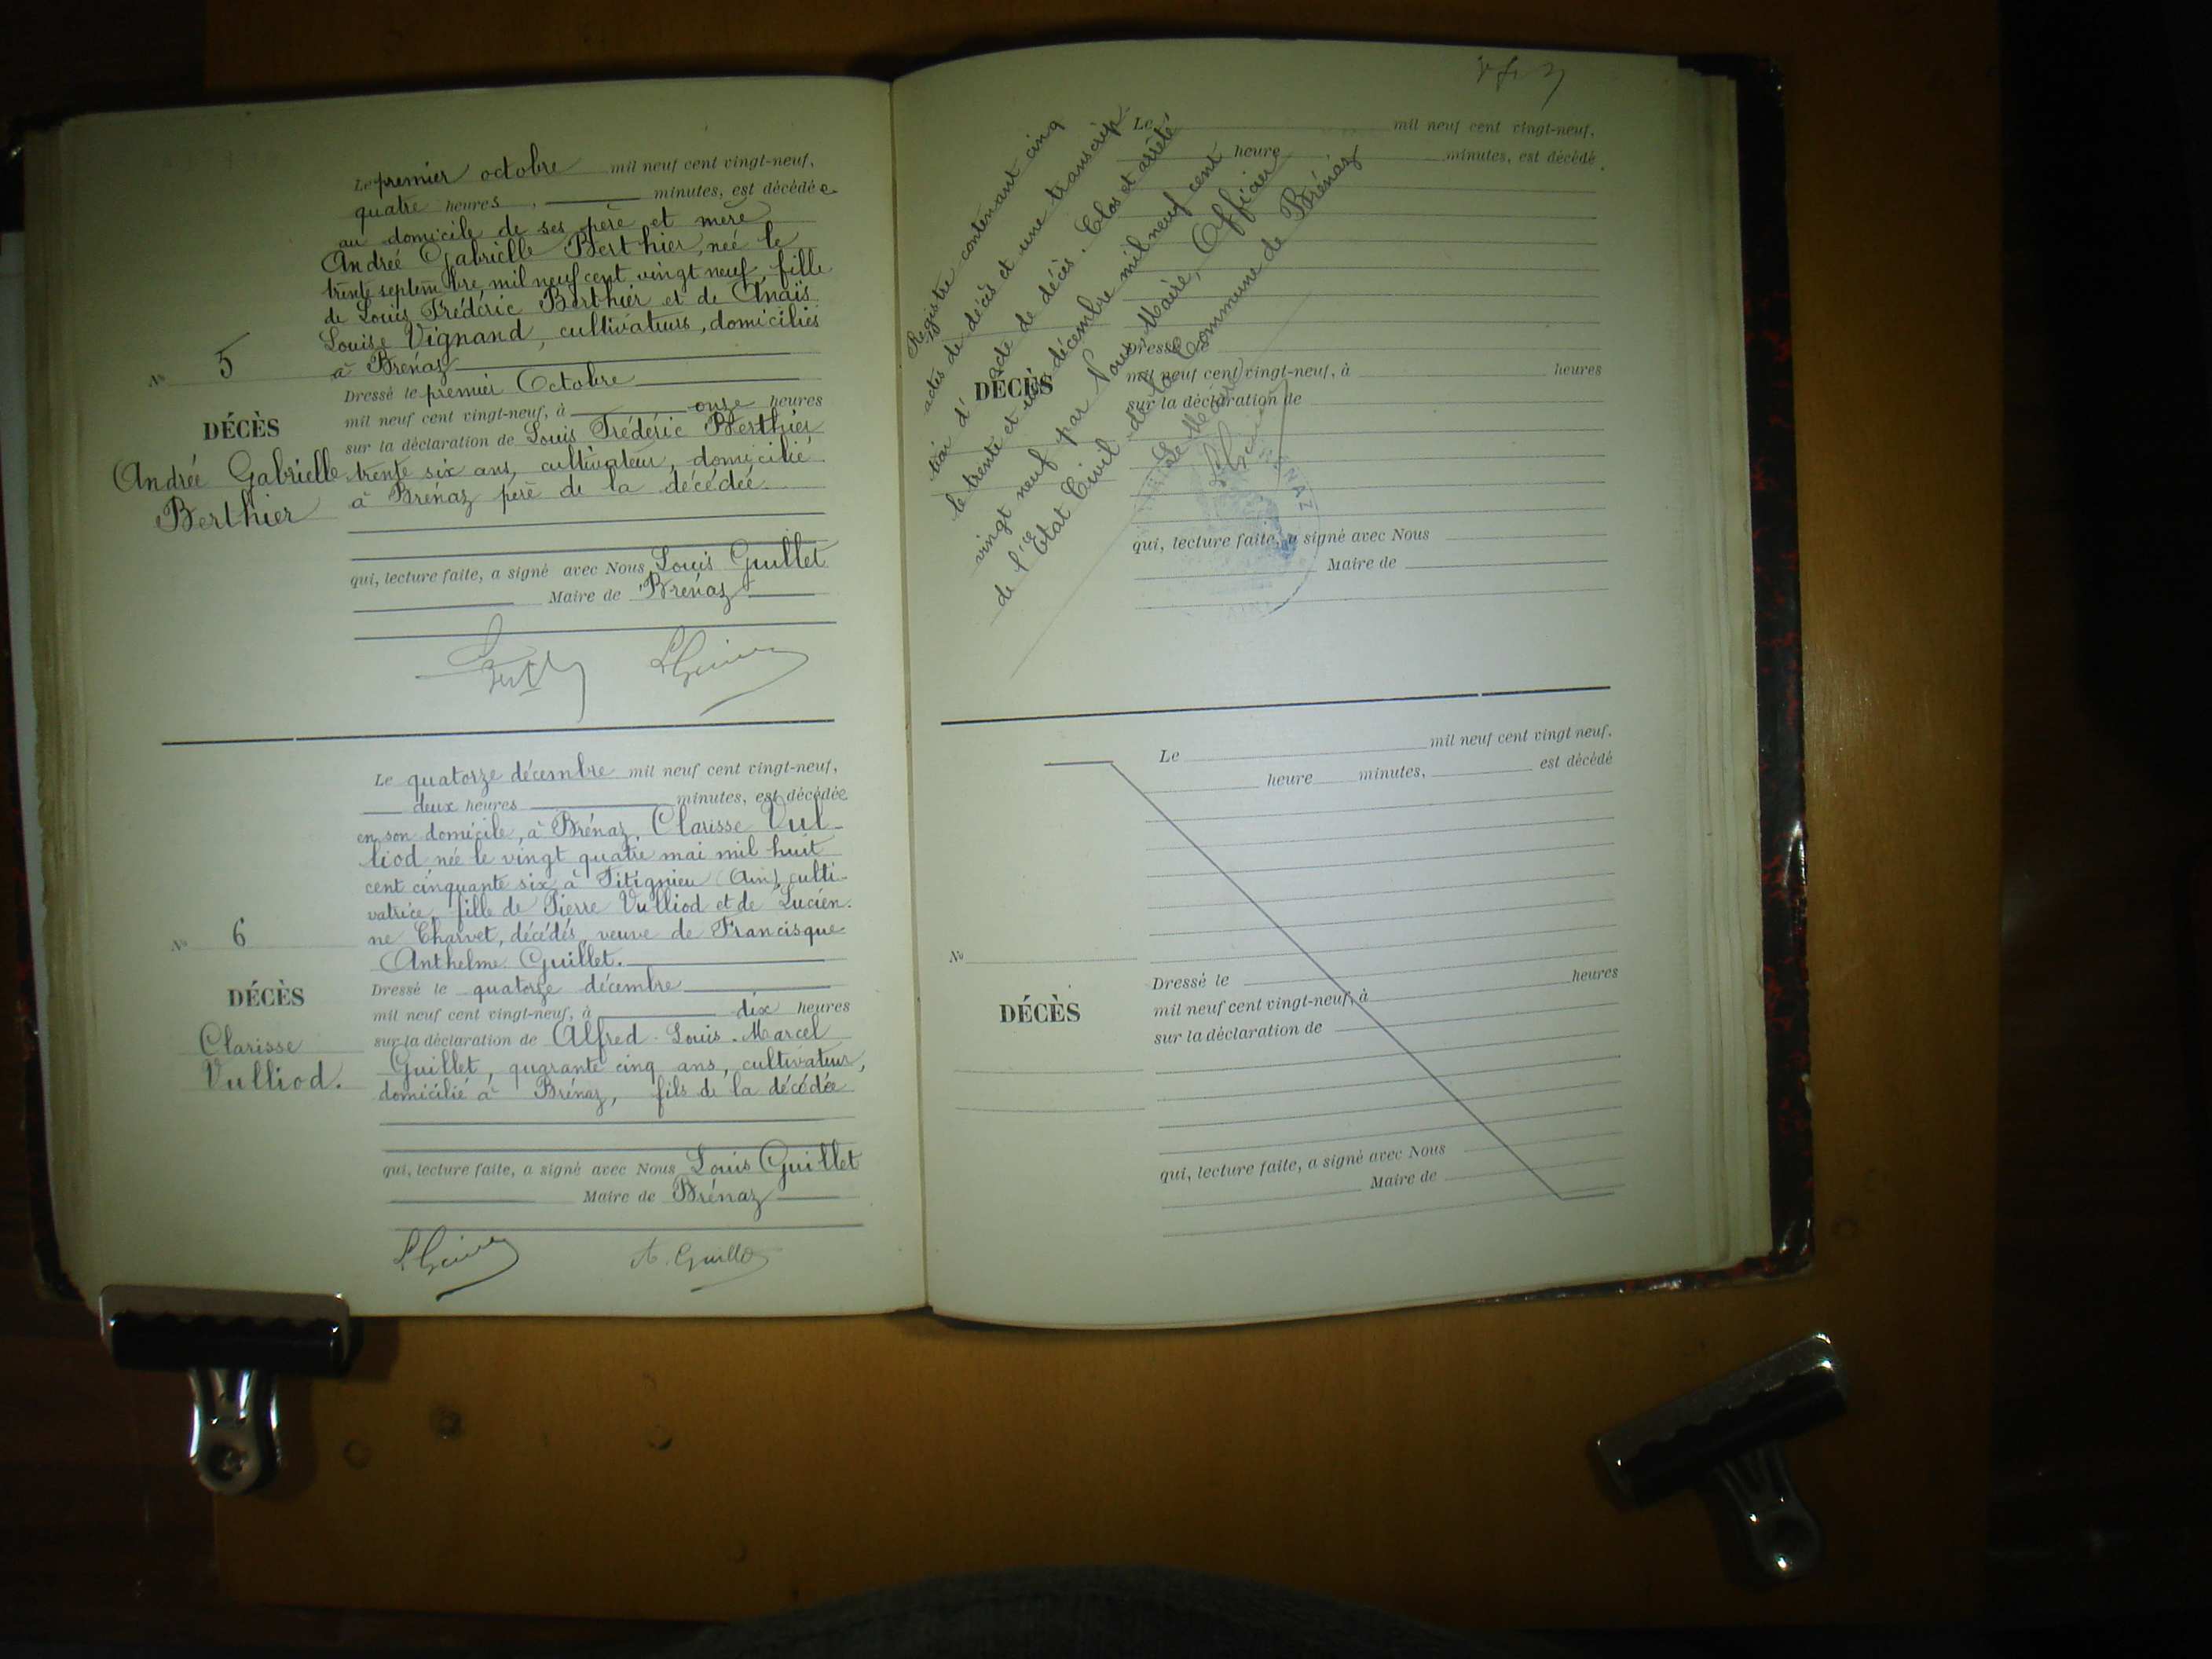 Le premier octobre mil neuf cent vingt-neuf,
quatre heures, minutes, est décédée
au domicile de ses père et mère
Andreé Gabrielle Berthier, neé le
trente septembre mil neuf cent vingt neuf, fille
de Louis Frédéric Berthier et de Anaïs
Louise Vignand, cultivateurs, domiciliés
à Brénaz
N° 5
DÉCÈS
Andreé Gabrielle
Berthier
Dressé le premier Octobre
mil neuf cent vingt-neuf, à onze heures
sur la déclaration de Louis Frédéric Berthier
trente six ans, cultivateur, domicilié
à Brénaz père de la décédée.
qui, lecture faite, a signé avec Nous Louis Guillet
Maire de Brénaz
Le quatorze décembre mil neuf cent vingt-neuf,
deux heures minutes, est décédée
en son domicile, à Brénaz, Clarisse Vul-
liod née le vingt quatre mai mil huit
cent cinquante six, à Titignieu (Ain), culti-
vatrice, fille de Pierre Vulliod et de Lucien-
ne Charvet, décédés, veuve de Francisque
Anthelme Guillet.
N° 6
DÉCÈS
Clarisse
Vulliod.
Dressé le quatorze décembre
mil neuf cent vingt-neuf, à dix heures
sur la déclaration de Alfred Louis Marcel
Guillet, quarante cinq ans, cultivateur,
domicilié à Brénaz, fils de la décédée
qui, lecture faite, a signé avec Nous Louis Guillet
Maire de Brénaz
A. Guillet
Registre contenant cinq
actes de décès et une transcrip
tion d'acte de décès. Clos et arrêté,
le trente et un décembre mil neuf cent
vingt neuf par Nous, Maire, Officier
de l'Etat Civil de la Commune de Brénaz
Le Maire
Le mil neuf cent vingt-neuf,
heure minutes, est décédé
DÉCÈS
Dressé le
mil neuf cent vingt-neuf, à heures
sur la déclaration de
qui, lecture faite, a signé avec Nous
Maire de
Le mil neuf cent vingt neuf,
heure minutes, est décédé
N°
DÉCÈS
Dressé le
mil neuf cent vingt-neuf, à heures
sur la déclaration de
qui, lecture faite, a signé avec Nous
Maire de